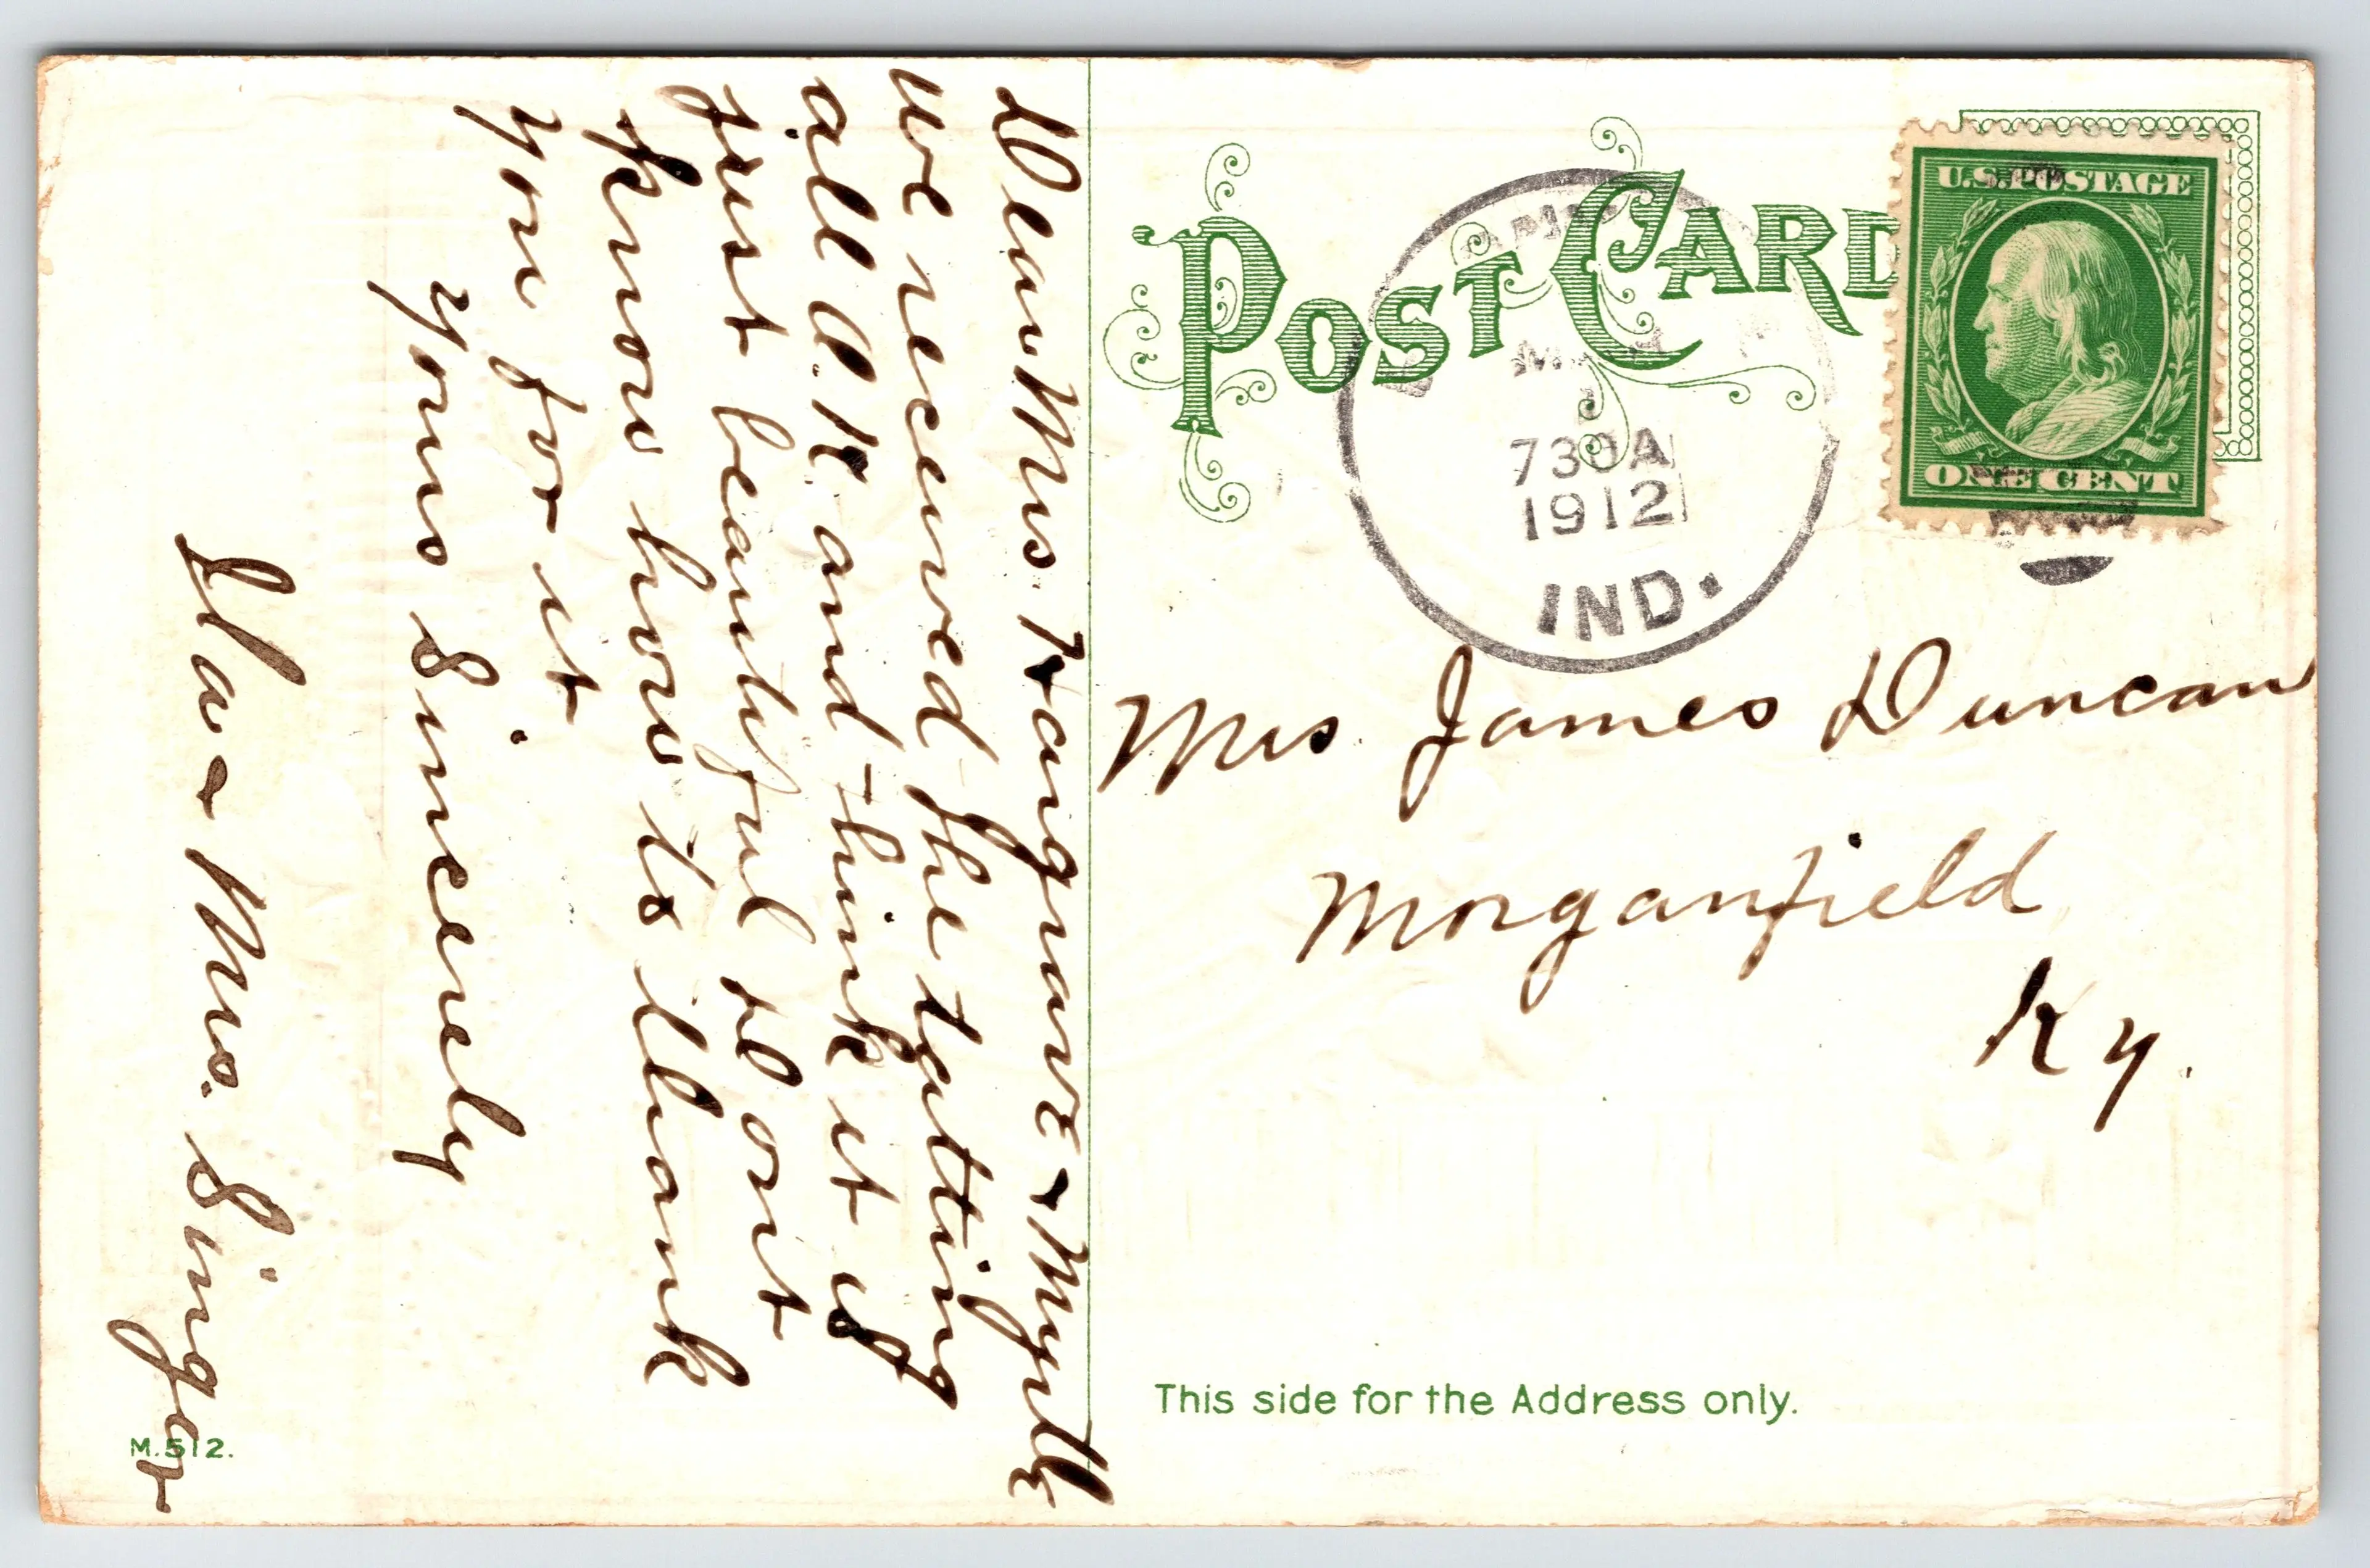 POST CARD
U.S. POSTAGE
ONE CENT
730A
1912
IND.
Mrs. James Duncan
Morganfield
Ky.
This side for the Address only.
Dear Mrs. & Myrtle
We received the tatting
all O.K. and think it is
just beautiful dont
know how to thank
you for it
Yours Sincerely
Ila & Mrs. Singer
M. 512.